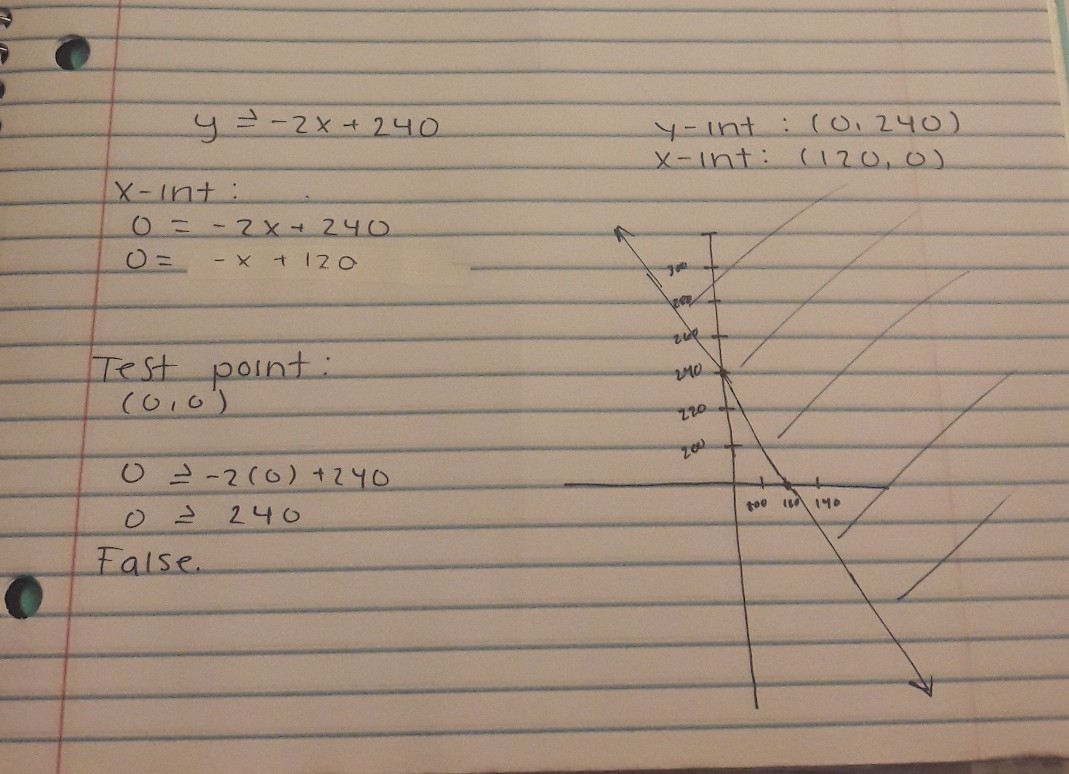 y ≥ -2x + 240
x-int :
0 = -2x + 240
0 = -x + 120
Test point :
(0,0)
0 ≥ -2(0) + 240
0 ≥ 240
False.
y-int : (0, 240)
x-int : (120, 0)
300
280
260
240
220
200
100 120 140